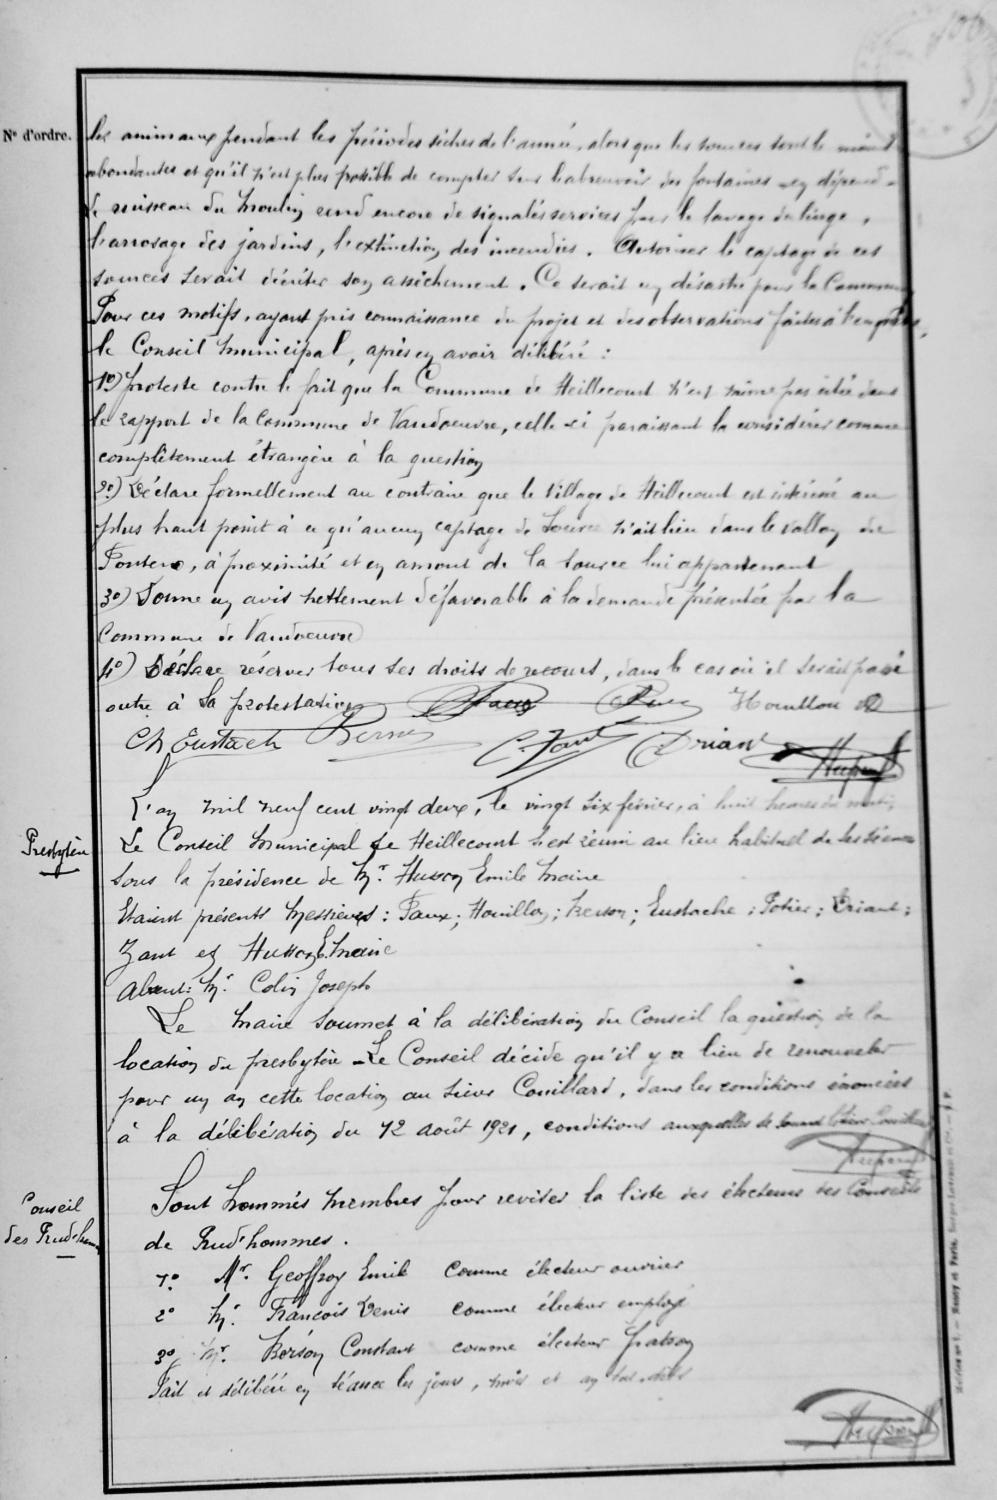 106
N° d'ordre.
les animaux pendant les périodes sèches de l'année, alors que les sources sont le moins
abondantes et qu'il n'est plus possible de compter sur l'abreuvoir des fontaines en dépend -
Le ruisseau du Moulin rend encore de signalés services pour le lavage du linge,
l'arrosage des jardins, l'extinction des incendies. Autoriser le captage de ces
sources serait décréter son assèchement. Ce serait un désastre pour la Commune
Pour ces motifs, ayant pris connaissance du projet et des observations faites à l'enquête,
le Conseil Municipal, après en avoir délibéré :
1°) Proteste contre le fait que la Commune de Heillecourt n'est même pas citée dans
le rapport de la Commune de Vandoeuvre, celle-ci paraissant la considérer comme
complètement étrangère à la question
2°) Déclare formellement au contraire que le village de Heillecourt est intéressé au
plus haut point à ce qu'aucun captage de source n'ait lieu dans le vallon de
Fonteno, à proximité et en amont de la source lui appartenant
3°) Donne un avis nettement défavorable à la demande présentée par la
Commune de Vandoeuvre
4°) Déclare réserver tous ses droits de recours, dans le cas où il serait passé
outre à sa protestation
Houillon
Ch Eustach
Zant
Driant
L'an mil neuf cent vingt deux, le vingt six février, à huit heures du matin
Presbytère
Le Conseil Municipal de Heillecourt s'est réuni au lieu habituel de ses séances
sous la présidence de Mr. Husson Emile Maire
Etaient présents Messieurs : Faux ; Houillon ; Kerson ; Eustache ; Potier ; Driant ;
Zant et Husson E. Maire
Absent : Mr. Colin Joseph
Le Maire soumet à la délibération du Conseil la question de la
location du presbytère - Le Conseil décide qu'il y a lieu de renouveler
pour un an cette location au sieur Couillard, dans les conditions énoncées
à la délibération du 12 août 1921, conditions auxquelles se soumet le sieur Couillard
Conseil
des Prud'hommes
Sont nommés membres pour reviser la liste des électeurs des Conseils
de Prud'hommes.
1° Mr. Geoffroy Emile comme électeur ouvrier
2° Mr. François Denis comme électeur employé
3° Mr. Bérson Constant comme électeur patron
Fait et délibéré en séance les jour, mois et an sus-dits